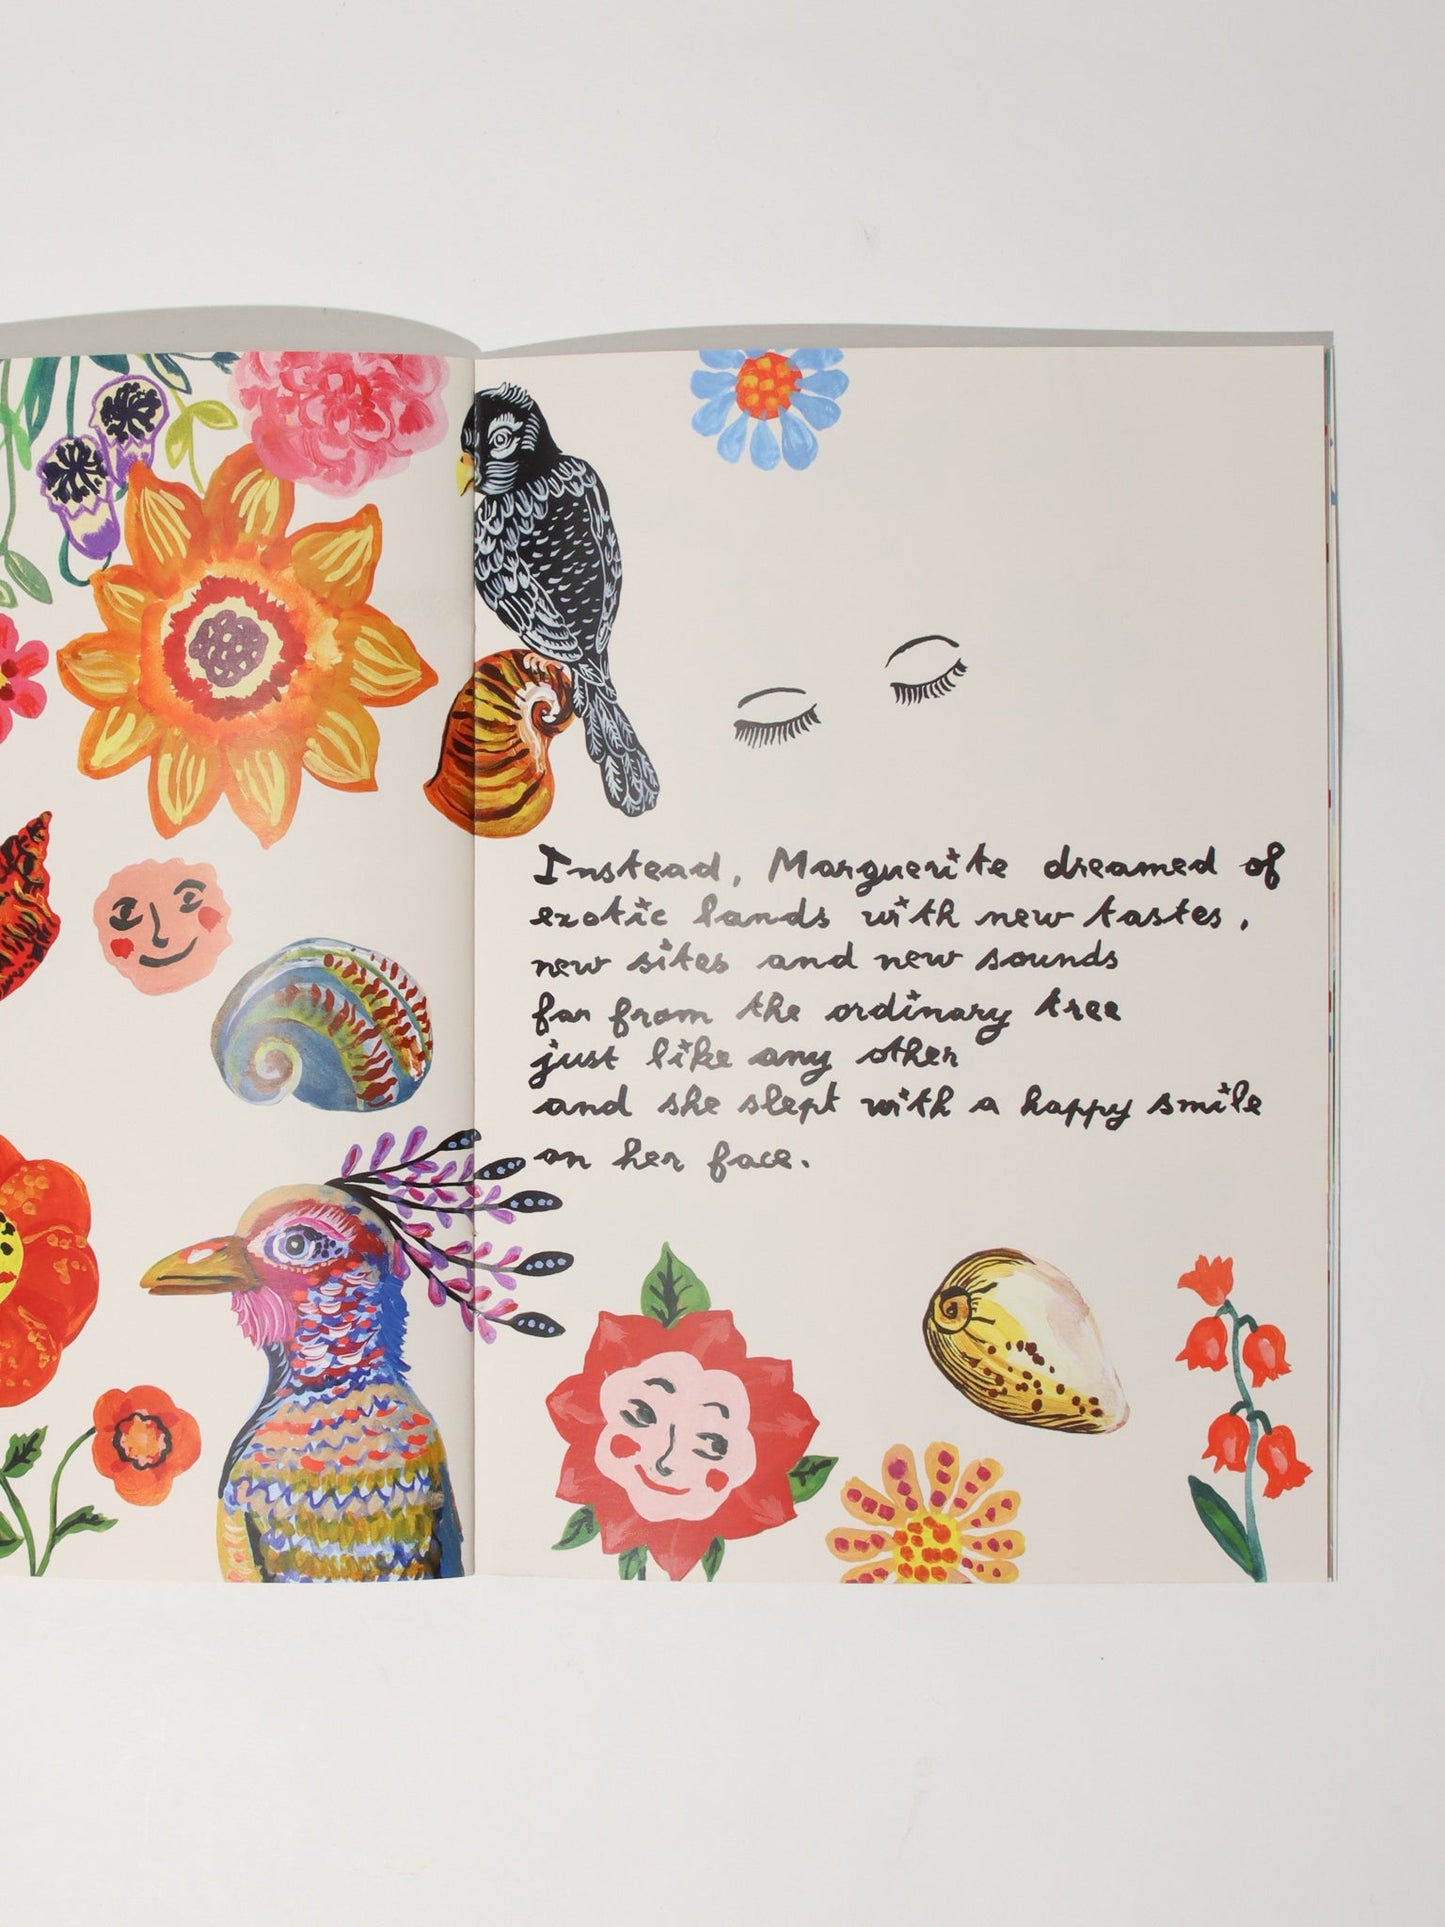 Instead, Marguerite dreamed of
exotic lands with new tastes,
new sites and new sounds
far from the ordinary tree
just like any other
and she slept with a happy smile
on her face.